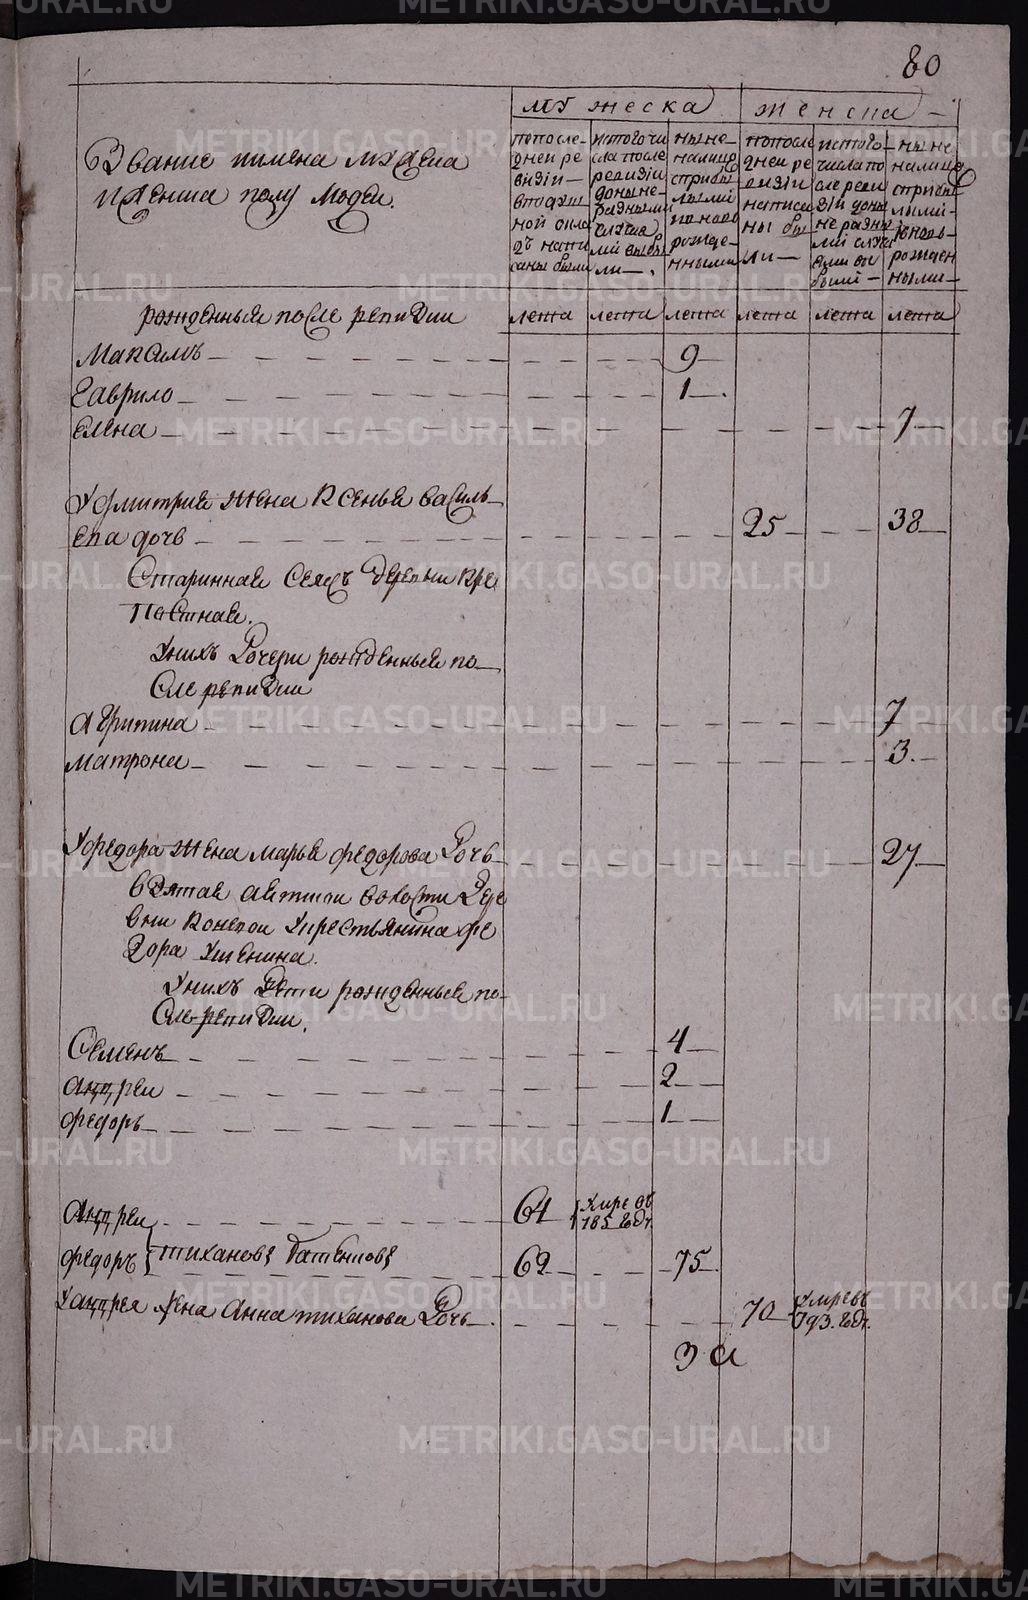 80
мужеска
женска
Звание имена мужеска
и женска полу людей.
по после-
дней ре
визии
в подуш
ной окла
дъ напи
саны были
ис того чи
сла после
ревизии
разными
случаи
ми выбы
ли
ныне
налицо
с прибы
лыми
и вновь
рожде-
нными
по после
дней ре
визии
написа
ны бы
ли
ис того
числа по
сле реви
зии
не разны
ми случ
аями вы
были
ныне
налицо
с прибы
лыми
вновь
рожден
ными
рожденныя после ревизии
лета лета лета лета лета лета
Максимъ 9
Гаврило 1
Елена 7
У Дмитрия жена Ксенья Василь
ева дочь 25 38
Старинная сей деревни кре
постная.
У нихъ дочери рожденныя по
сле ревизии
Агрипина 7
Матрона 3
У Федора жена Марья Федорова дочь 27
взятая волости дере
вни крестьянина Фе
дора
У нихъ дети рожденныя по
сле ревизии.
Семенъ 4
Андреи 2
Федоръ 1
Андреи 61 умре въ
785 годе
Федоръ Тихановы 62 75
У Андрея жена Анна Тиханова дочь 70 умре въ
793 годе
METRIKI.GASO-URAL.RU